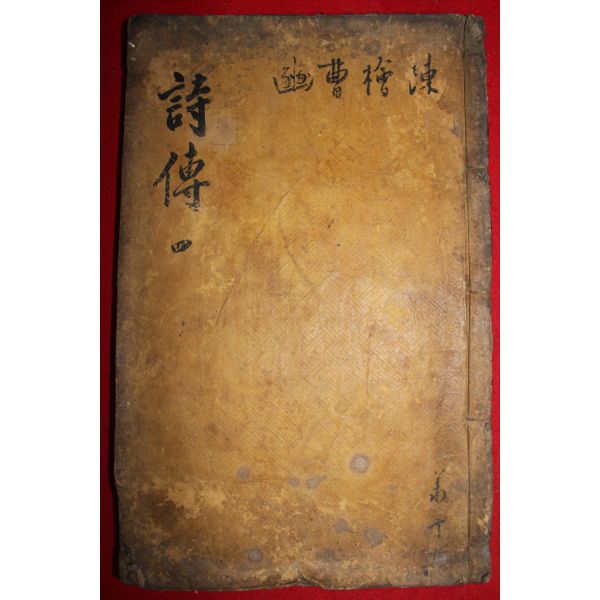 詩傳 四
陳 檜 曹 豳